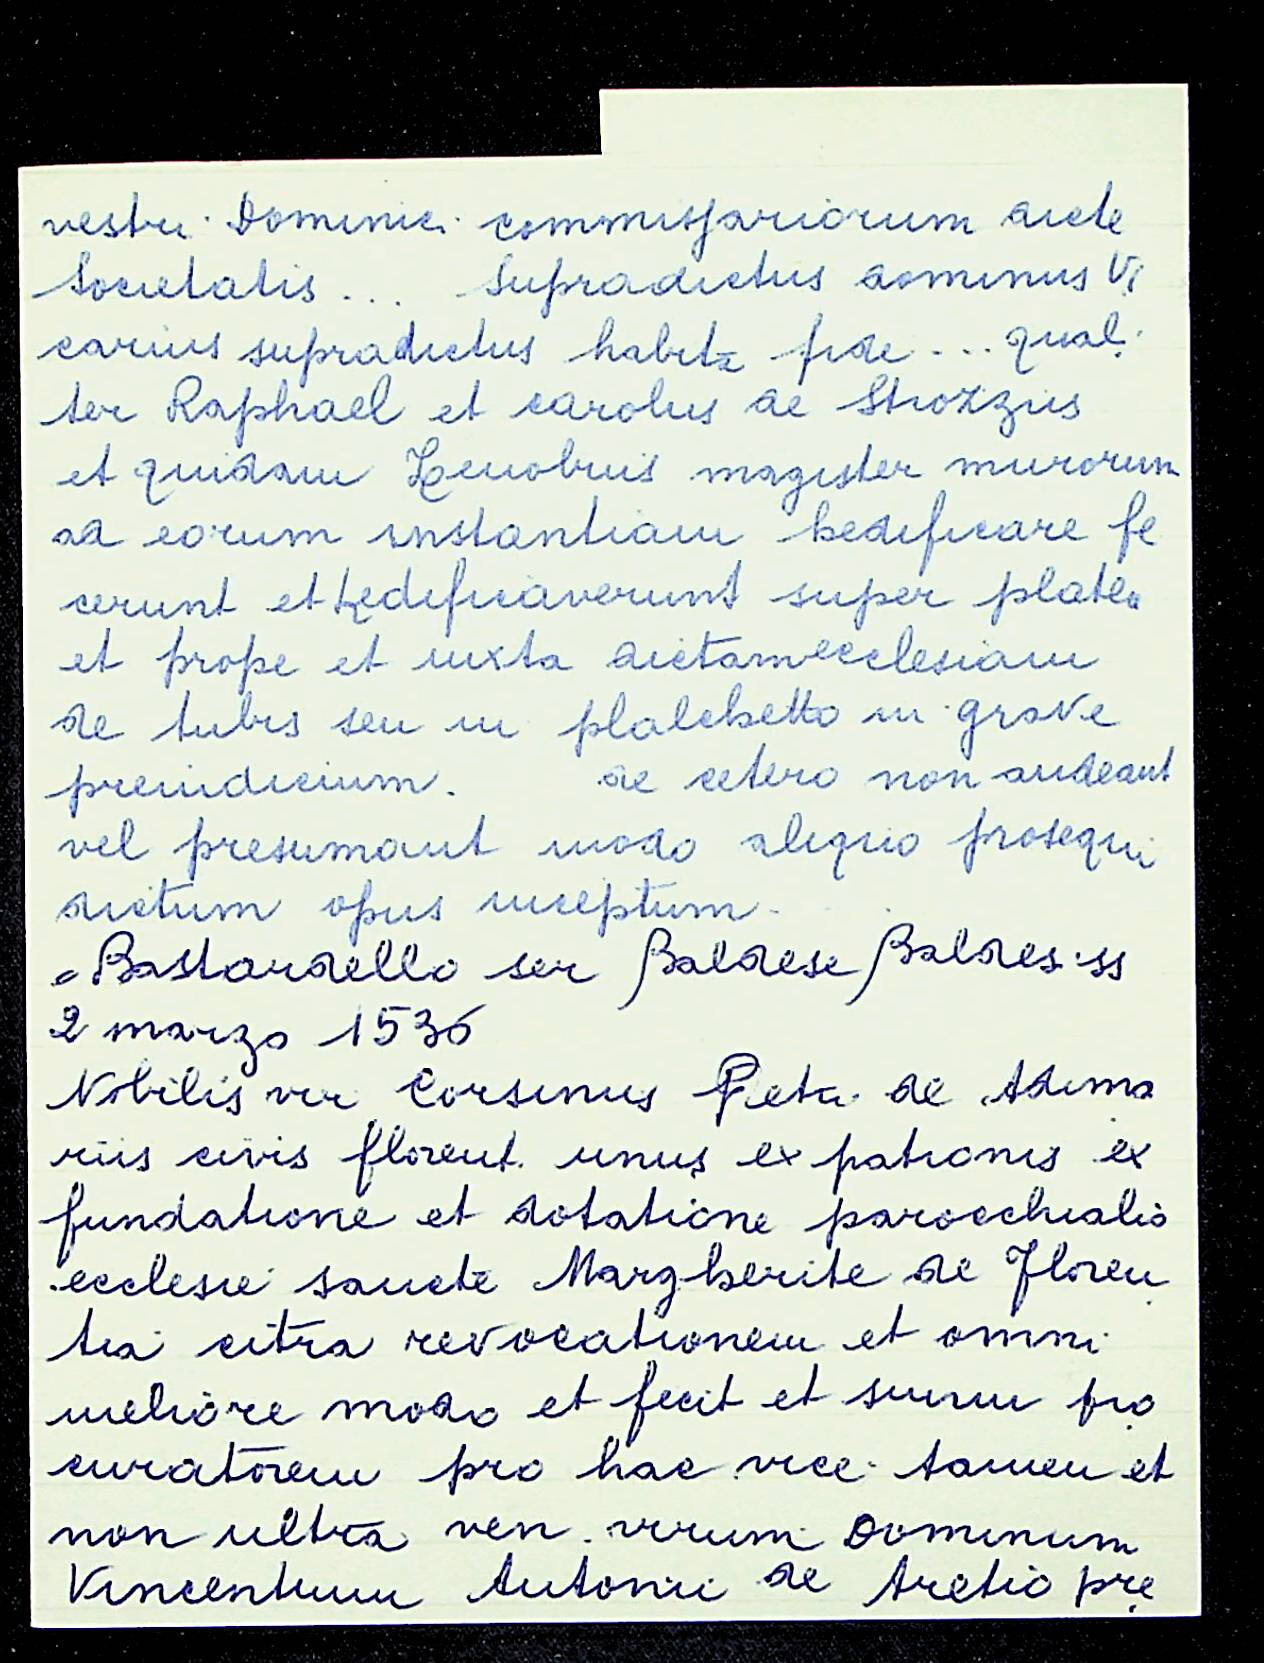 vestri Dominici commissariorum dicte
Societatis ... Supradictus dominus Vi
carius supradictus habita fide ... quali
ter Raphael et carolus de Strozzis
et quidam Zenobius magister murorum
ad eorum instantiam hedificare fe
cerunt et hedificaverunt super platea
et prope et iuxta dictam ecclesiam
de tubis seu in plalchetto in grave
preiudicium. de cetero non audeant
vel presumant modo aliquo prosequi
dictum opus inceptum.
Bastardello ser Baldese Baldesi ss
2 marzo 1536
Nobilis vir Corsinus Peta de Adima
riis civis florent. unus ex patronis ex
fundatione et dotatione parocchialis
ecclesie sancte Margherite de Floren
tia citra revocationem et omni
meliore modo et fecit et suum pro
curatorem pro hac vice tamen et
non ultra ven. virum Dominum
Vincentium Antonii de Aretio pre